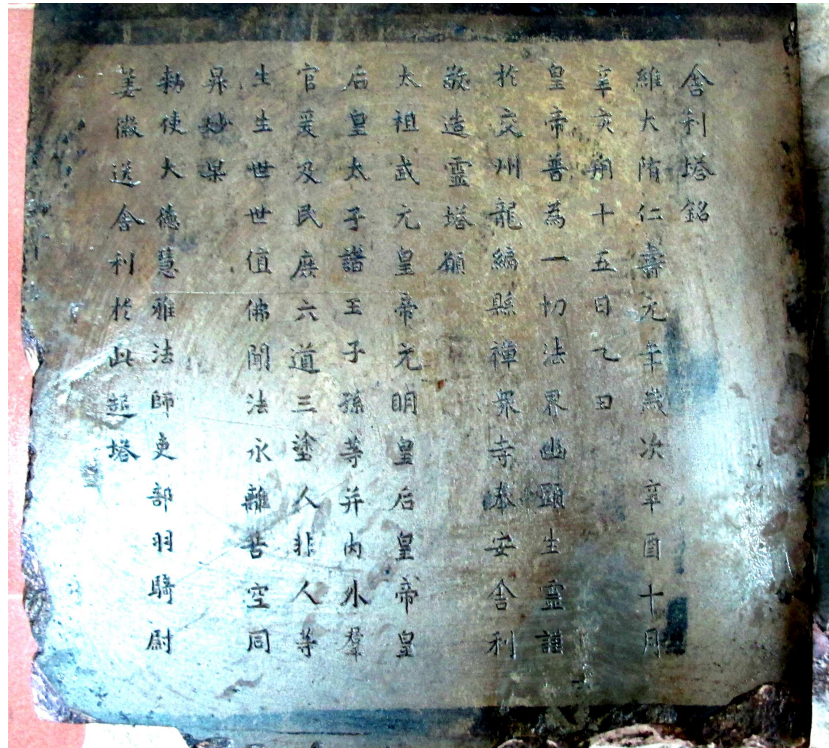 舎利塔銘
維大隋仁壽元年歳次辛酉十月
辛亥朔十五日乙丑
皇帝普為一切法界幽顕生霊謹
於交州龍編縣禪衆寺奉安舎利
敬造霊塔願
太祖武元皇帝元明皇后皇帝皇
后皇太子諸王子孫等并内外羣
官爰及民庶六道三塗人非人等
生生世世值佛聞法永離苦空同
昇妙果
勅使大德慧雅法師吏部羽騎尉
姜徽送舎利於此起塔